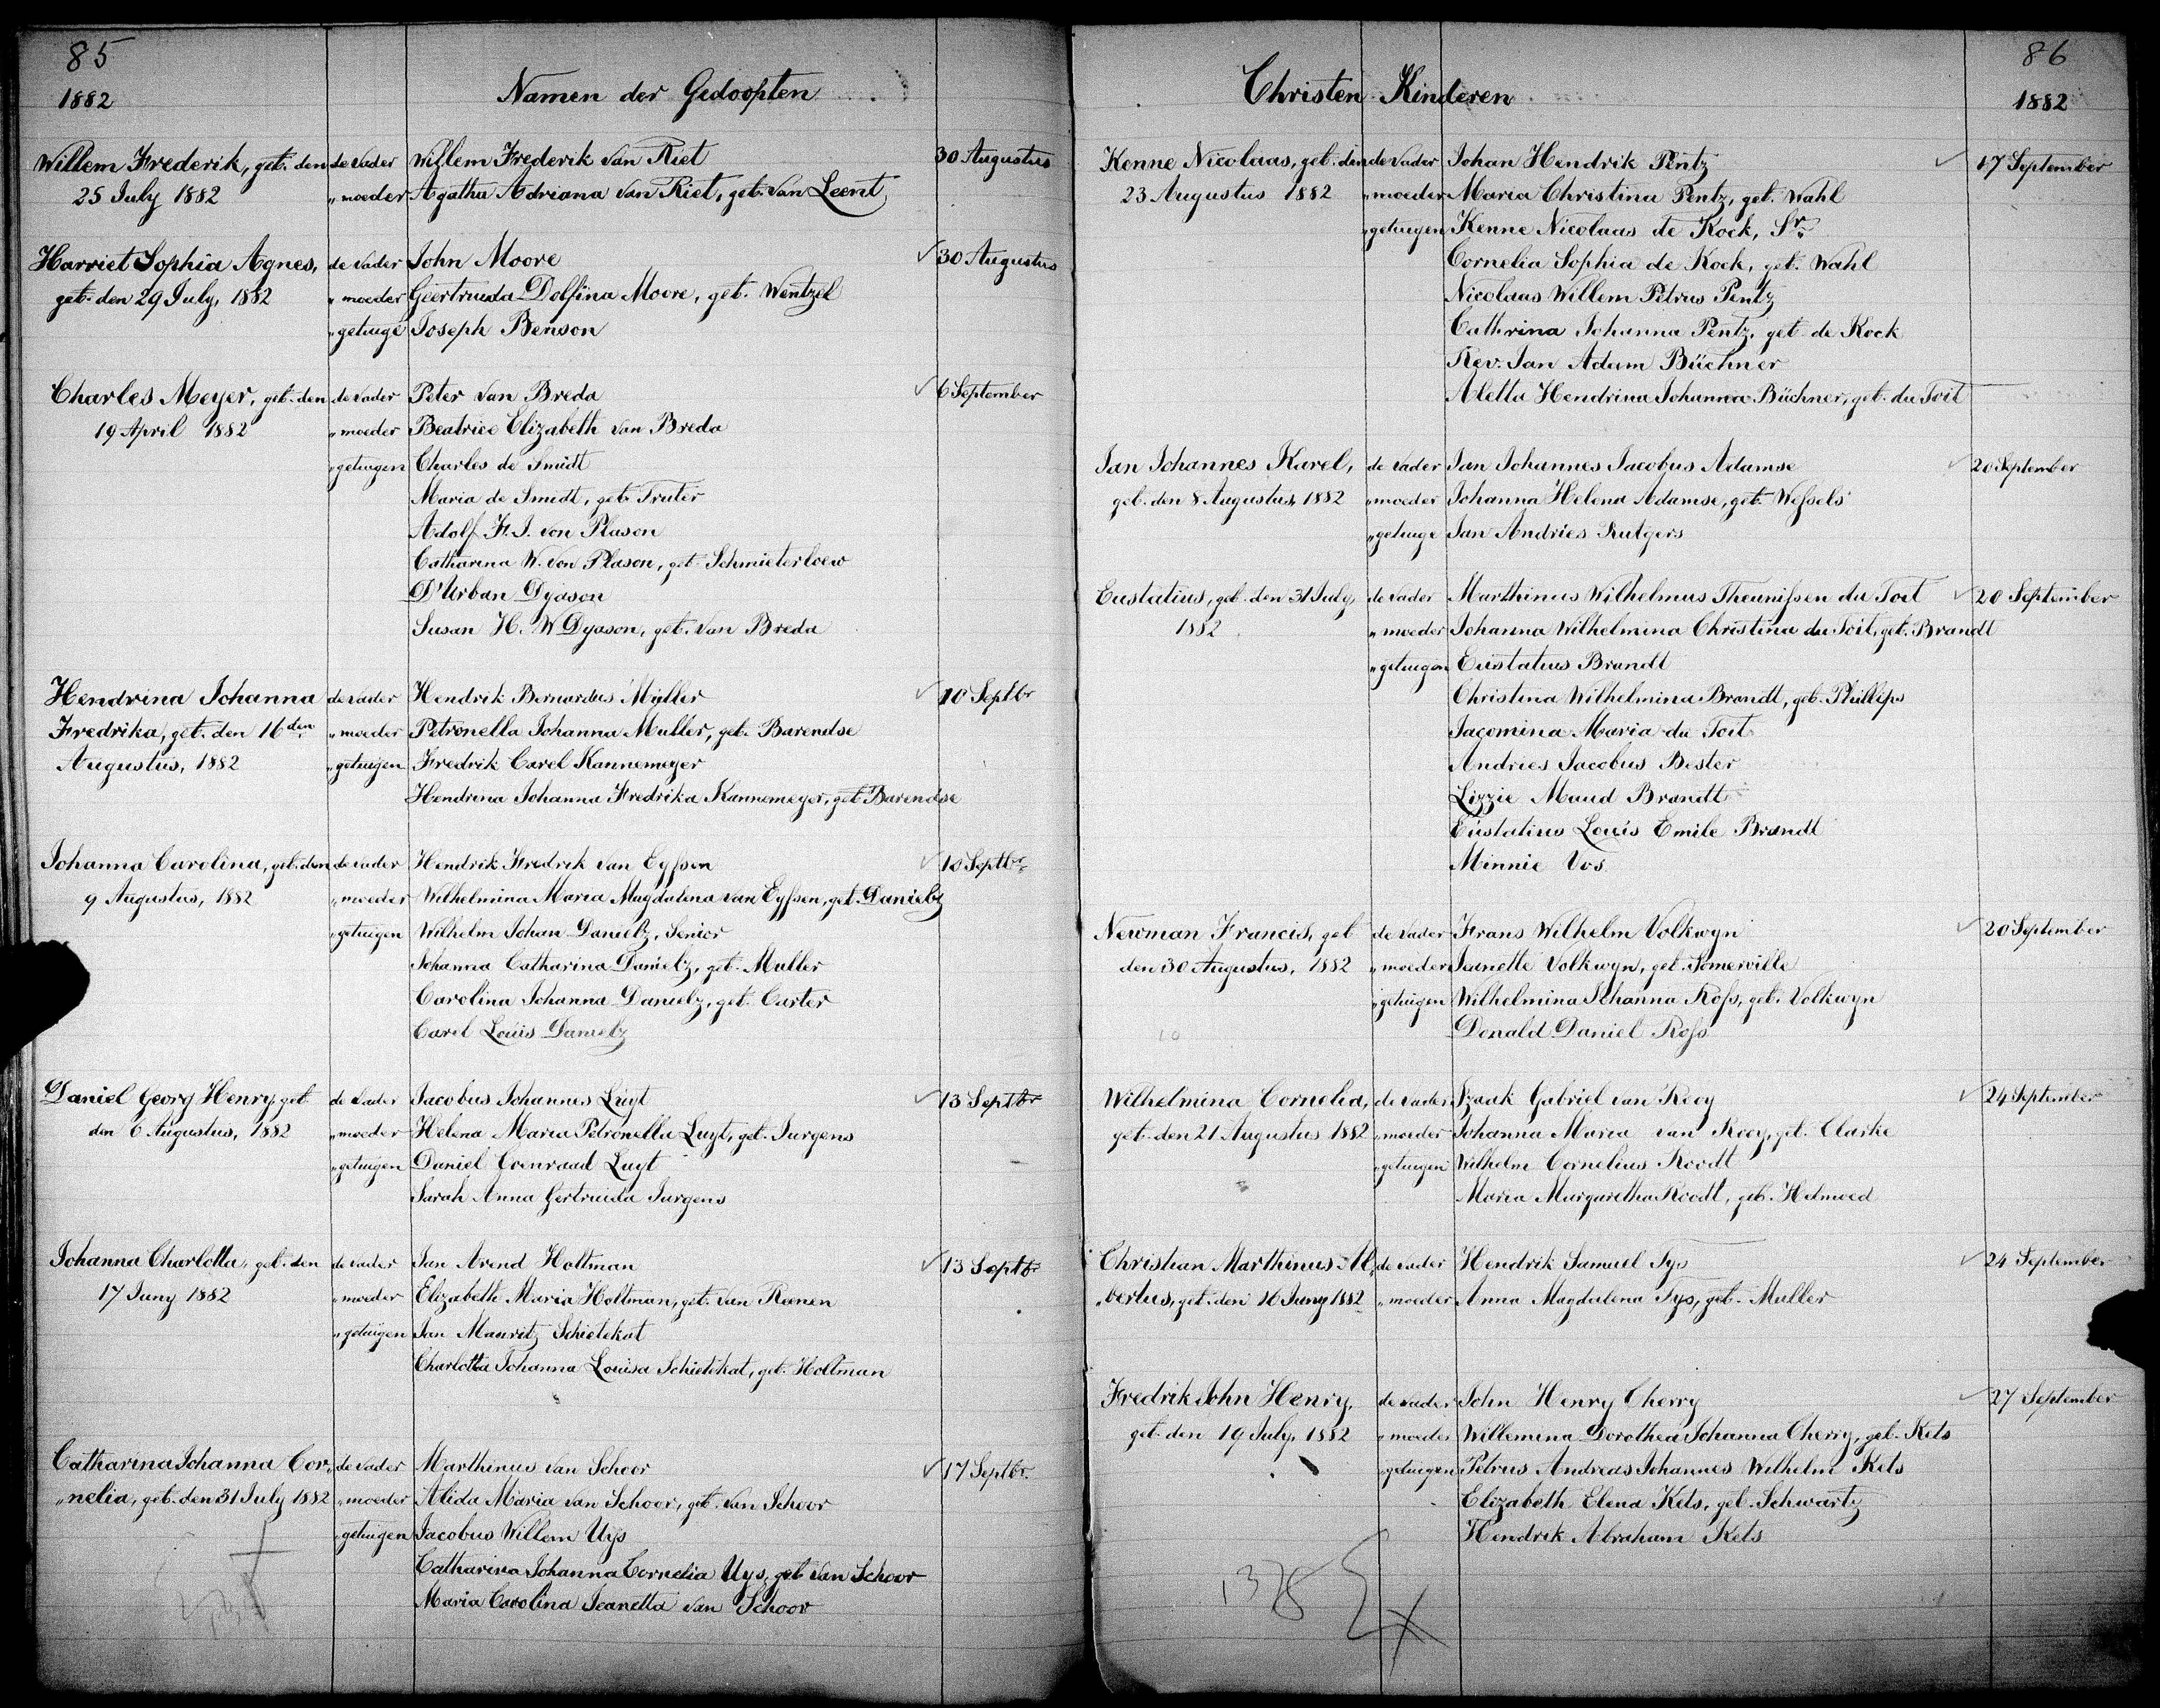 85
1882
Namen der Gedoopten
Willem Frederik, geb. den de vader Willem Frederik van Riet 30 Augustus
25 July 1882 „ moeder Agatha Adriana van Riet, geb. van Leent
Harriet Sophia Agnes, de vader John Moore 30 Augustus
geb. den 29 July, 1882 „ moeder Geertruida Dolfina Moore, geb. Wentzel
„ getuige Joseph Benson
Charles Meyer, geb. den de vader Peter van Breda 6 September
19 April 1882 „ moeder Beatrice Elizabeth van Breda
„ getuigen Charles de Smidt
Maria de Smidt, geb. Truter
Adolf F. J. von Plason
Catharina W. von Plason, geb. Schmieterloew
D'Urban Dyason
Susan H. W Dyason, geb. van Breda
Hendrina Johanna de vader Hendrik Bernardus Muller 10 Septbr
Fredrika, geb. den 16den „ moeder Petronella Johanna Muller, geb. Barendse
Augustus, 1882 „ getuigen Fredrik Carel Kannemeyer
Hendrina Johanna Fredrika Kannemeyer, geb. Barendse
Johanna Carolina, geb. den de vader Hendrik Fredrik van Eyssen 10 Septbr
9 Augustus, 1882 „ moeder Wilhelmina Maria Magdalena van Eyssen, geb. Danielz
„ getuigen Wilhelm Johan Danielz, Senior
Johanna Catharina Danielz, geb. Muller
Carolina Johanna Danielz, geb. Carter
Carel Louis Danielz
Daniel Georg Henry, geb. de vader Jacobus Johannes Luyt 13 Septbr
den 6 Augustus, 1882 „ moeder Helena Maria Petronella Luyt, geb. Jurgens
„ getuigen Daniel Coenraad Luyt
Sarah Anna Gertruida Jurgens
Johanna Charlotta, geb. den de vader Jan Arend Holtman 13 Septbr
17 Juny 1882 „ moeder Elizabeth Maria Holtman, geb. van Reenen
„ getuigen Jan Mauritz Schietekat
Charlotta Johanna Louisa Schietekat, geb. Holtman
Catharina Johanna Cor„ de vader Marthinus van Schoor 17 Septbr.
„nelia, geb. den 31 July 1882 „ moeder Alida Maria van Schoor, geb. van Schoor
„ getuigen Jacobus Willem Uys
Catharina Johanna Cornelia Uys, geb. van Schoor
Maria Carolina Jeanetta van Schoor
86
1882
Christen Kinderen
Kenne Nicolaas, geb. den de vader Johan Hendrik Pentz 17 September
23 Augustus 1882 „ moeder Maria Christina Pentz, geb. Wahl
„ getuigen Kenne Nicolaas de Kock, Sr.
Cornelia Sophia de Kock, geb. Wahl
Nicolaas Willem Petrus Pentz
Cathrina Johanna Pentz, geb. de Kock
Rev. Jan Adam Büchner
Aletta Hendrina Johanna Büchner, geb. du Toit
Jan Johannes Karel, de vader Jan Johannes Jacobus Adamse 20 September
geb. den 8 Augustus, 1882 „ moeder Johanna Helena Adamse, geb. Wessels
„ getuige Jan Andries Rutgers
Eustatius, geb. den 31 July, de vader Marthinus Wilhelmus Theunissen du Toit 20 September
1882 „ moeder Johanna Wilhelmina Christina du Toit, geb. Brandt
„ getuigen Eustatius Brandt
Christina Wilhelmina Brandt, geb. Phillips
Jacomina Maria du Toit
Andries Jacobus Bester
Lizzie Maud Brandt
Eustatius Louis Emile Brandt
Minnie Vos
Newman Francis, geb de vader Frans Wilhelm Volkwyn 20 September
den 30 Augustus, 1882 „ moeder Jeanette Volkwyn, geb. Somerville
„ getuigen Wilhelmina Johanna Ross, geb. Volkwyn
Donald Daniel Ross
Wilhelmina Cornelia, de vader Izaak Gabriel van Rooy 24 September
geb. den 21 Augustus 1882 „ moeder Johanna Maria van Rooy, geb. Clarke
„ getuigen Wilhelm Cornelius Roodt
Maria Margaretha Roodt, geb. Helmoed
Christian Marthinus Al„ de vader Hendrik Samuel Tys 24 September
„bertus, geb. den 16 Juny 1882 „ moeder Anna Magdalena Tys, geb. Muller
Fredrik John Henry, de vader John Henry Cherry 27 September
geb. den 19 July, 1882 „ moeder Willemina Dorothea Johanna Cherry, geb. Kets
„ getuigen Petrus Andreas Johannes Wilhelm Kets
Elizabeth Elena Kets, geb. Schwartz
Hendrik Abraham Kets